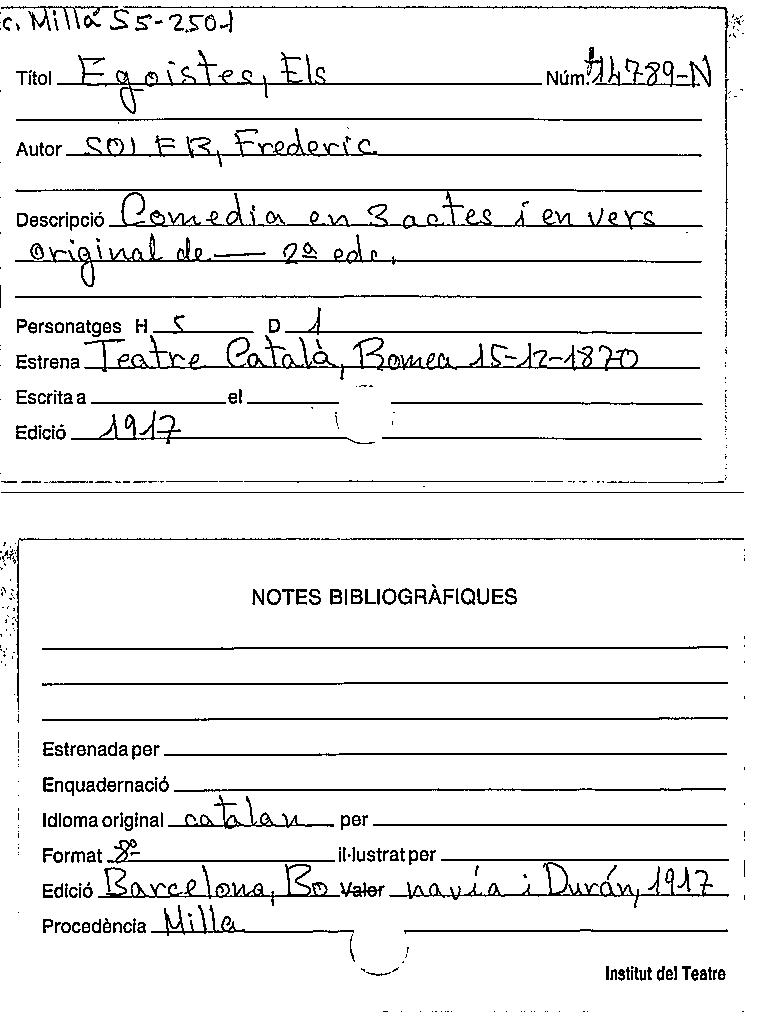 c. Millá S5-2501
Títol Egoistes, Els Núm. 14789-N
Autor SOLER, Frederic
Descripció Comedia en 3 actes i en vers
original de — 2ª edc.
Personatges H 5 D 1
Estrena Teatre Català, Romea 15-12-1870
Escrita a el
Edició 1917
NOTES BIBLIOGRÀFIQUES
Estrenada per
Enquadernació
Idioma original catalan per
Format 8º il·lustrat per
Edició Barcelona, Bo Valer navía i Durán, 1917
Procedència Milla
Institut del Teatre